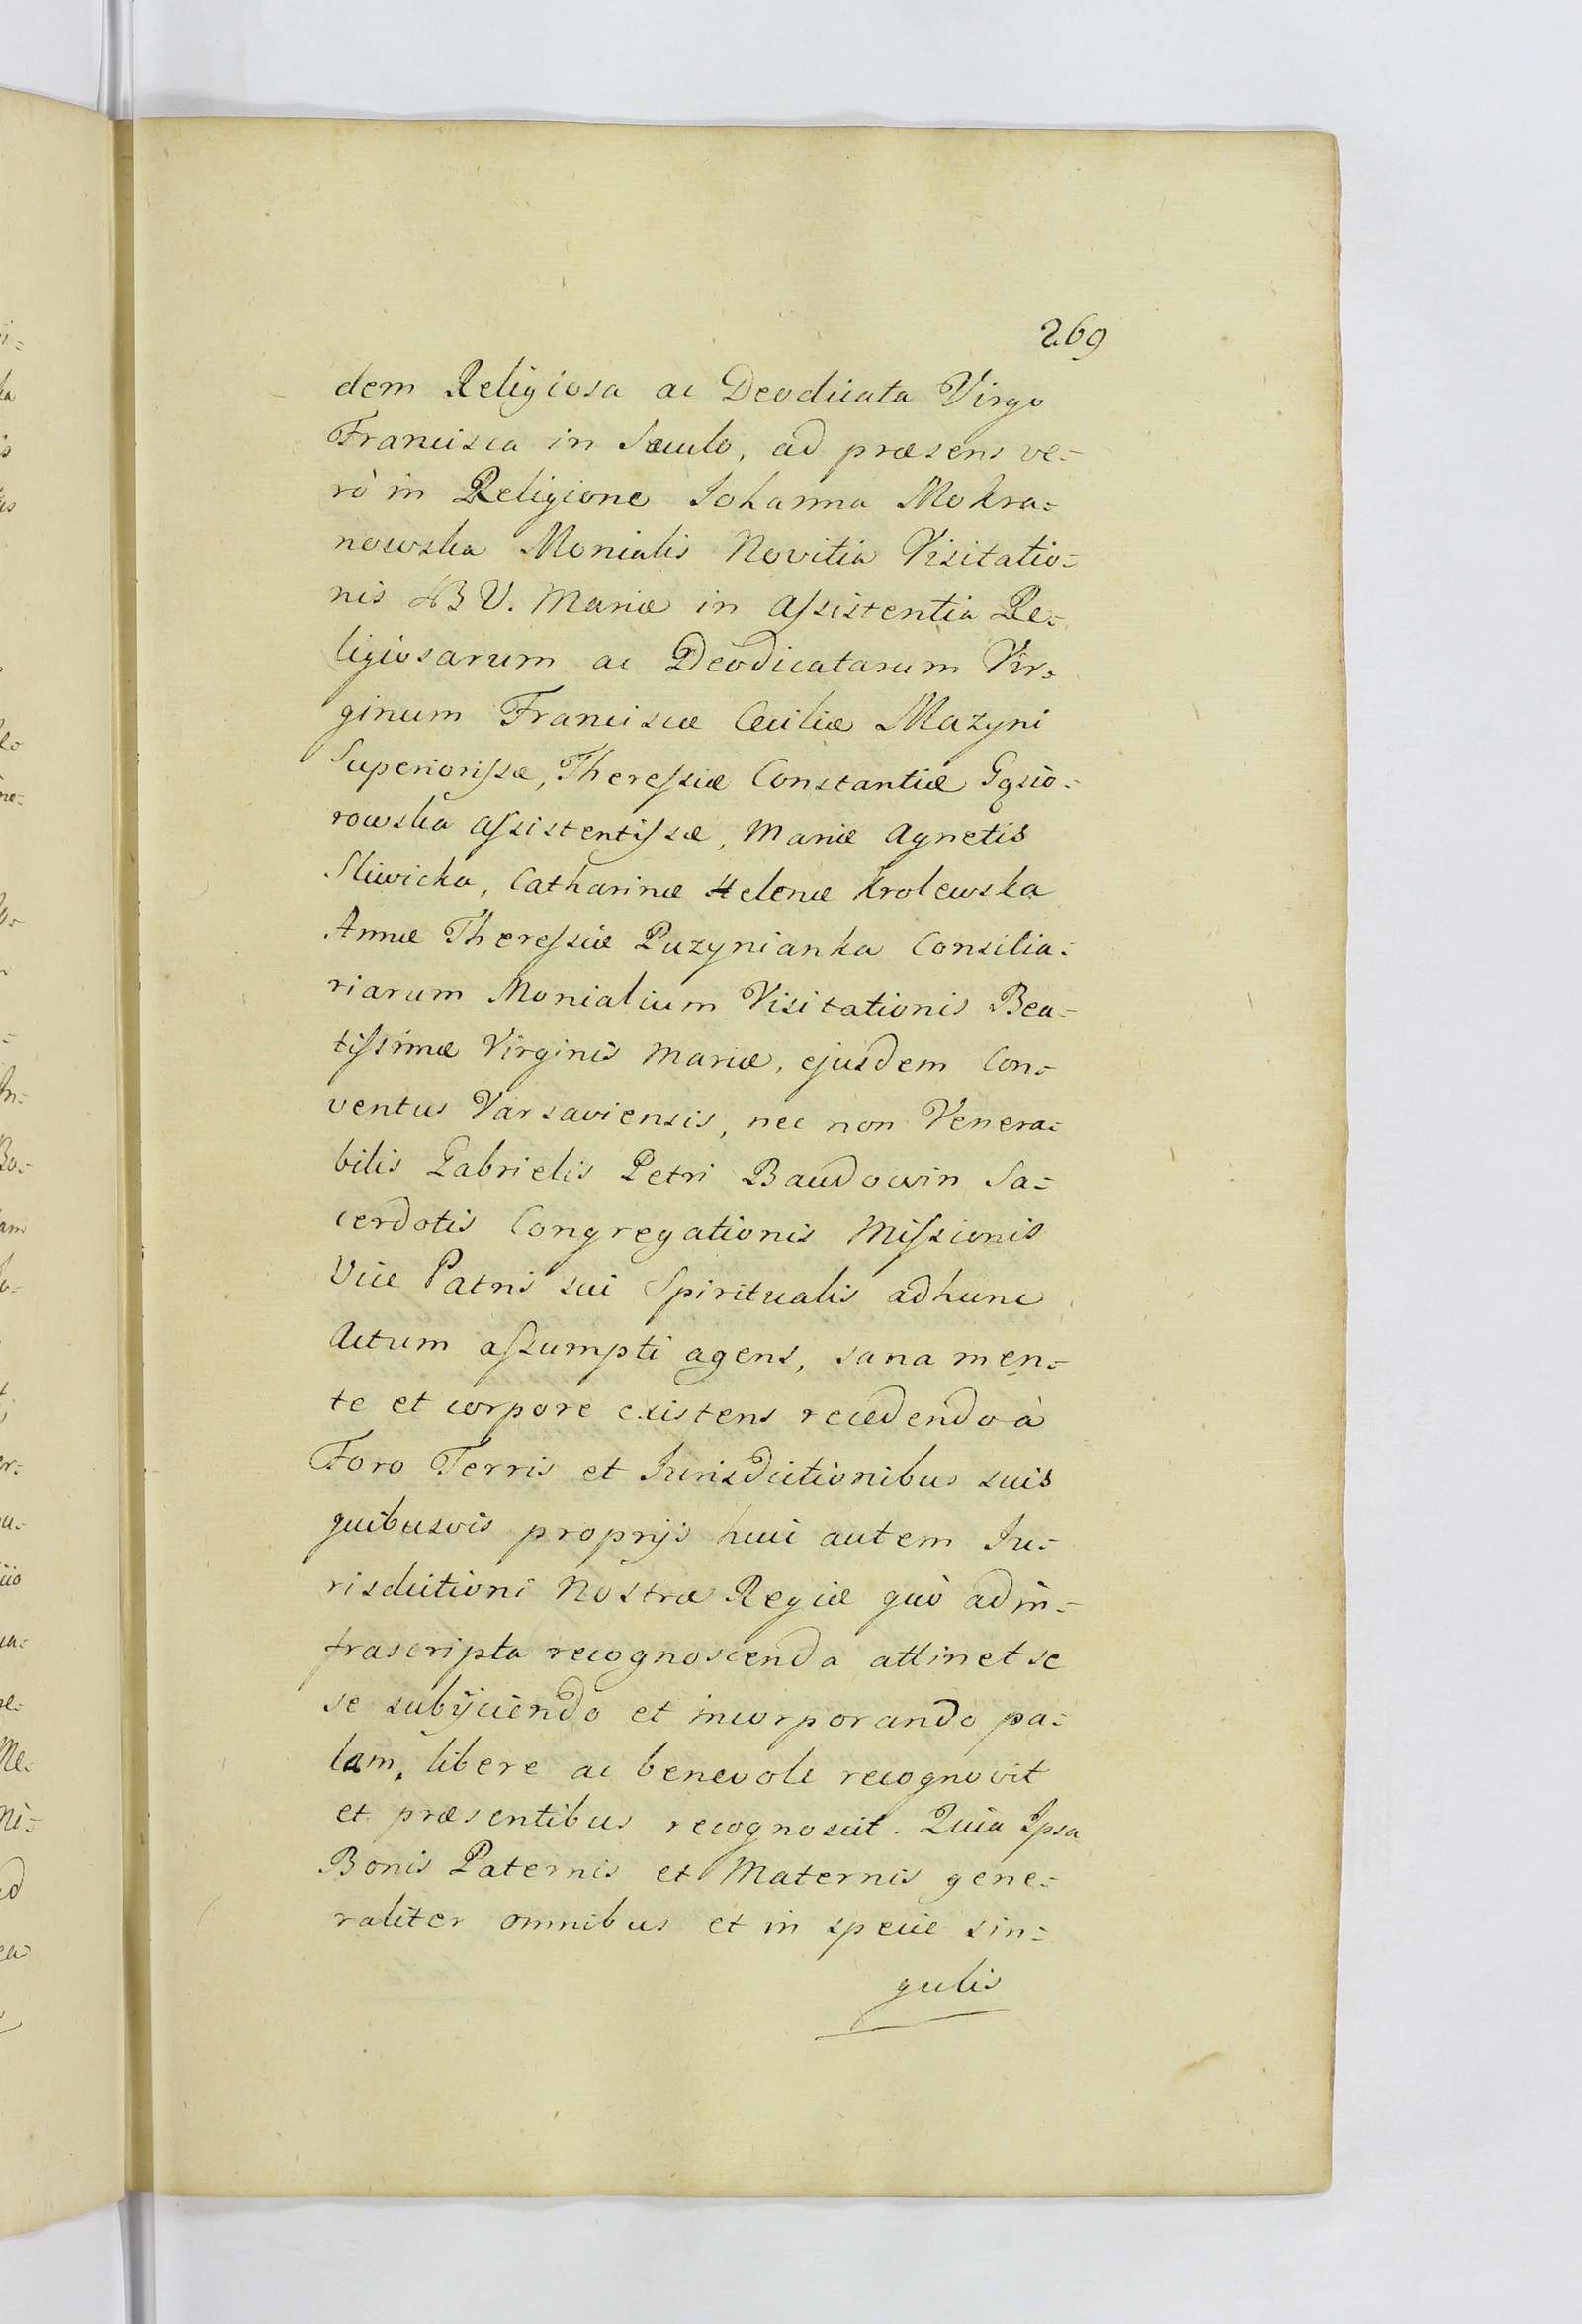 269
dem Religiosa ac Deodicata Virgo
Francisca in Sæculo, ad præsens ve=
rò in Religione Johanna Mokra=
nowska Monialis Novitia Visitatio=
nis B V. Mariæ in Aſsistentia Re=
ligiosarum ac Deodicatarum Vir=
ginum Franciscæ Cæciliæ Mazyni
Superioriſsæ, Thereſsiæ Constantiæ Gąsio=
rowska Aſsistentiſsæ, Mariæ Agnetis
Sliwicka, Catharinæ Helenæ Krolewska
Annæ Thereſsiæ Puzynianka Consilia=
riarum Monialium Visitationis Bea=
tiſsimæ Virginis Mariæ, ejusdem Con=
ventus Varsaviensis, nec non Venera=
bilis Gabrielis Petri Baudowin Sa=
cerdotis Congregationis Miſsionis
Vice Patris sui Spiritualis adhunc
Actum aſsumpti agens, sana men=
te et corpore existens recedendo à
Foro Terris et Jurisdictionibus suis
quibusvis proprijs huic autem Ju=
risdictioni Nostræ Regiæ quò ad in=
frascripta recognoscenda attinet se
se subijciendo et incorporando pa=
lam, libere ac benevole recognovit
et præsentibus recognoscit. Quia Ipsa
Bonis Paternis et Maternis gene=
raliter omnibus et in specie sin=
gulis